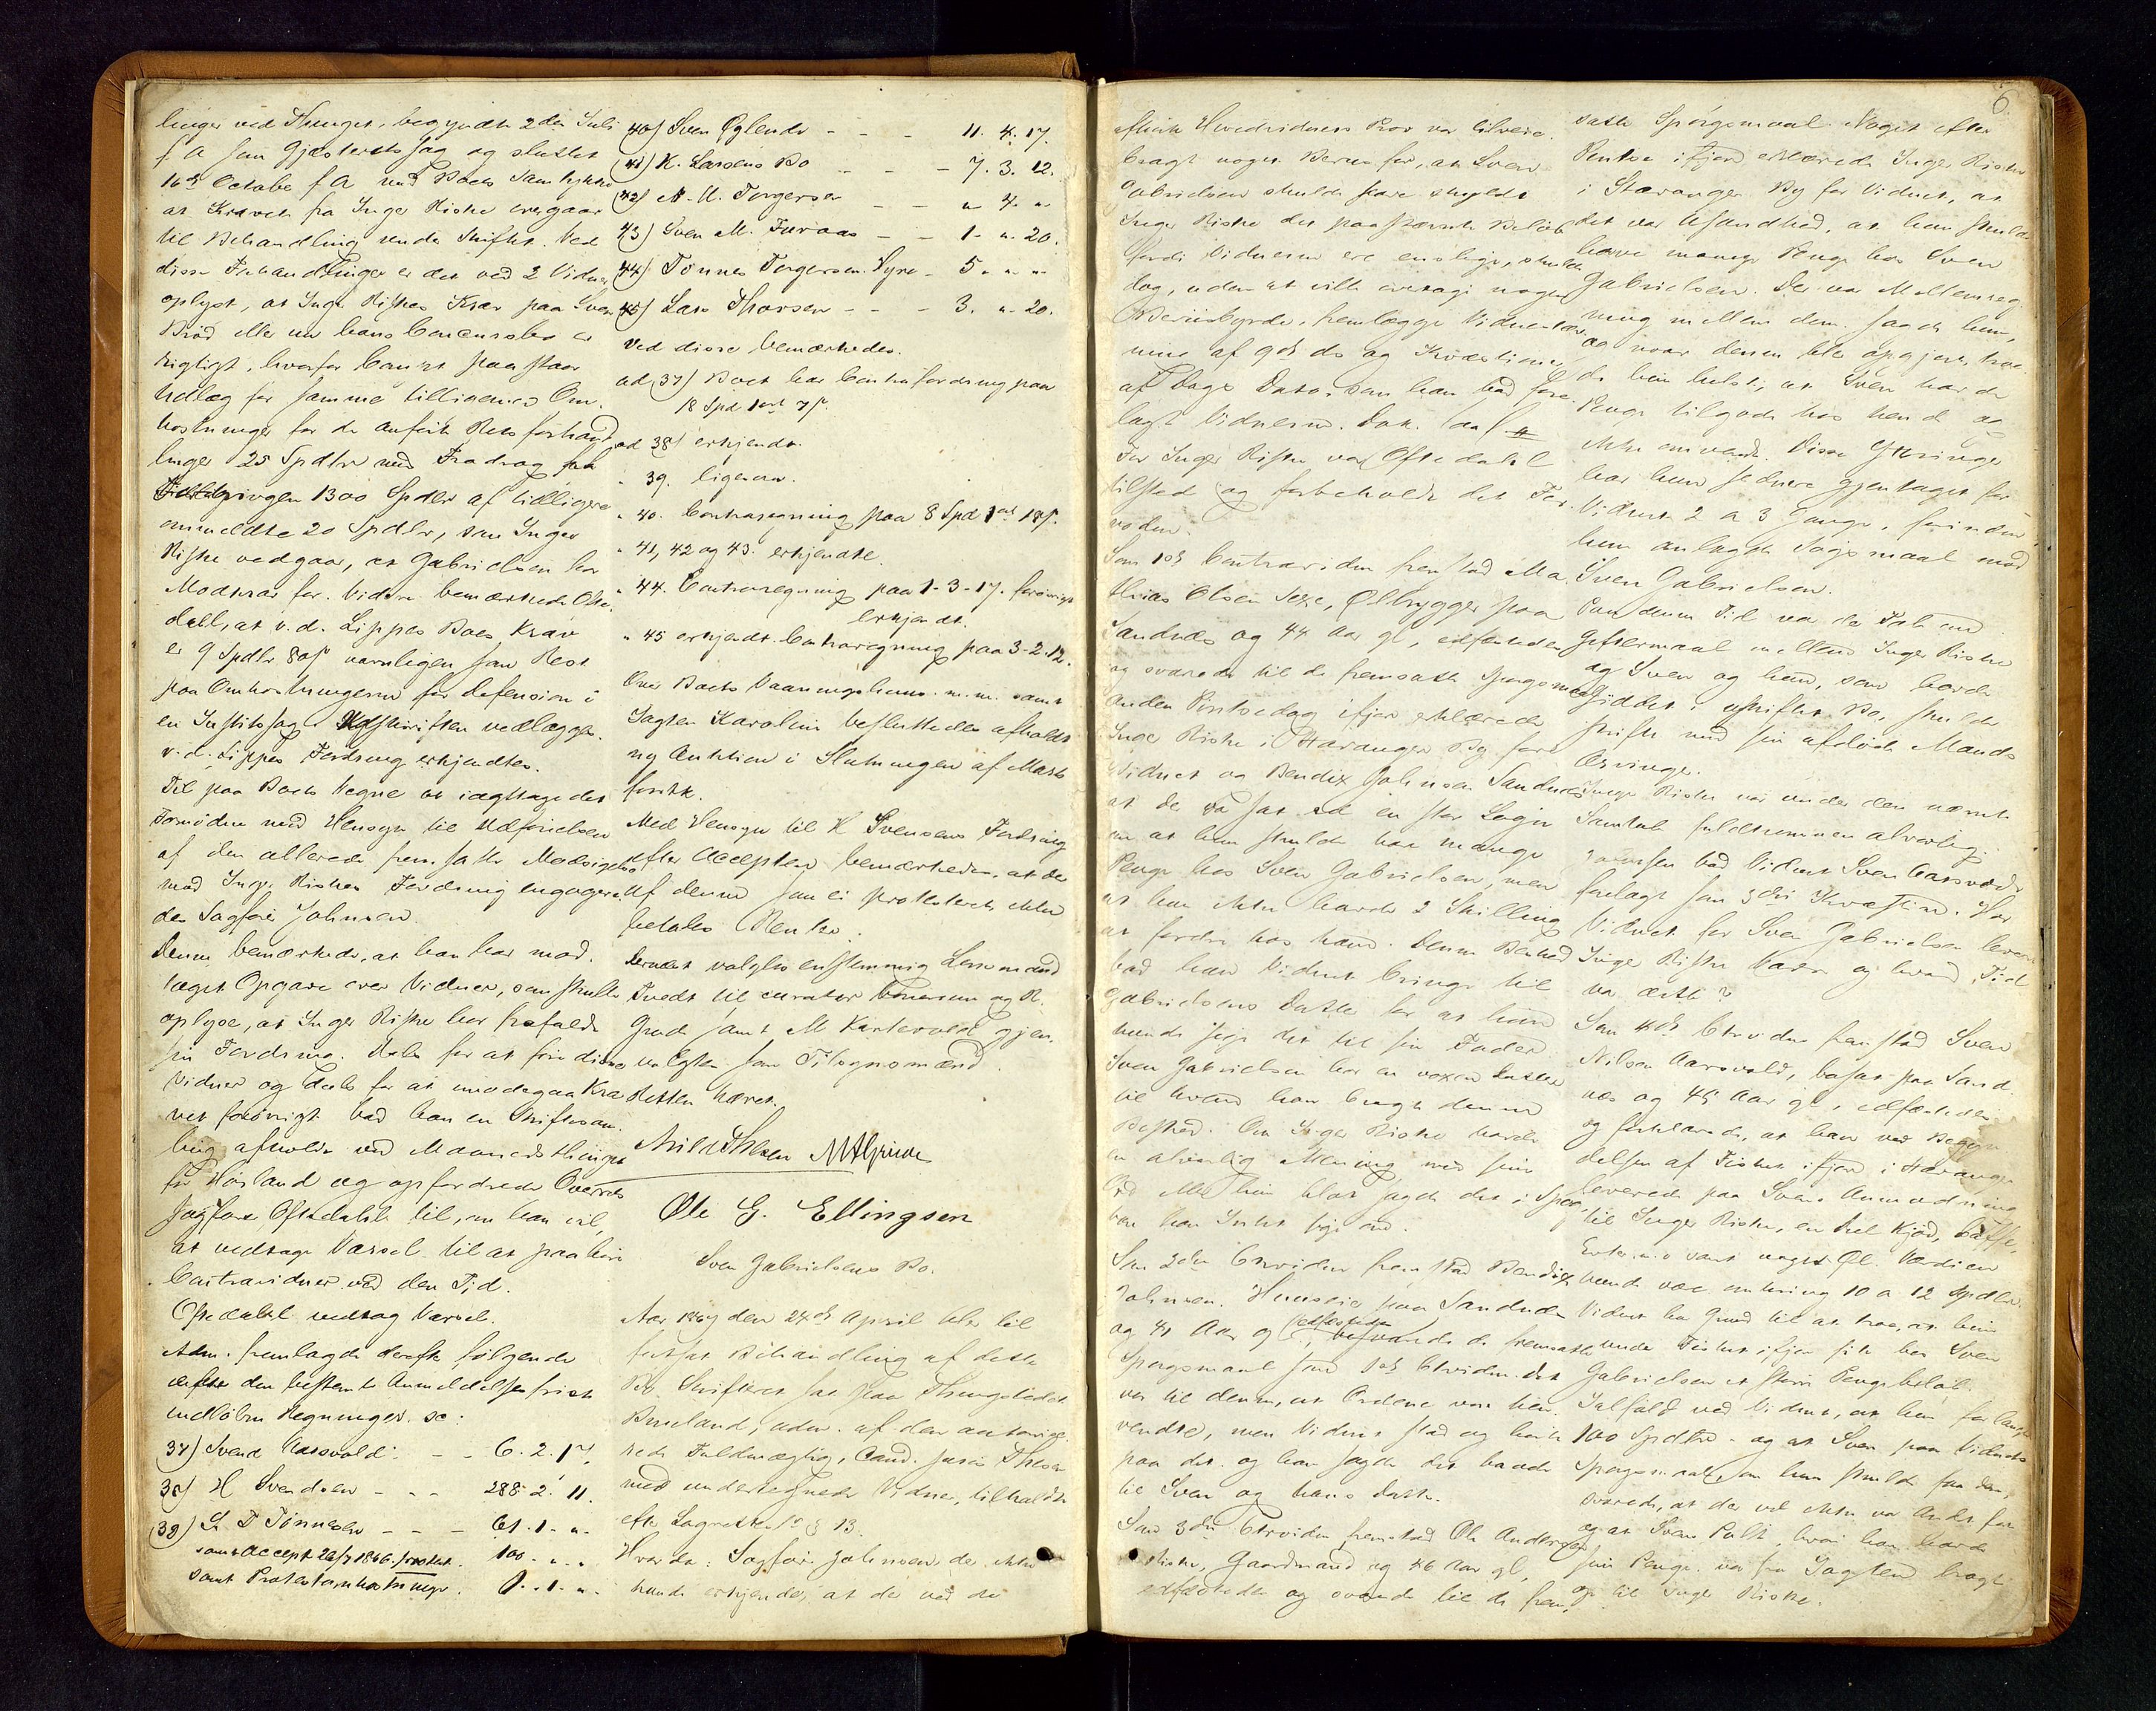 linger ved Thinget, begyndte 2den Juli
f A som Gjæsteretssag og sluttet
16de October f A med Boets Samtykke
at Kravet fra Inger Riske overgaar
til Behandling under Skiftet. Ved
disse Forhandlinger er det ved 2 Vidner
oplyst, at Inger Riskes Krav paa Sven
Brød eller nu hans Concursbo er
rigtigt, hvorfor paastaar
Udlæg for samme tilligemed Om-
kostninger for de anførte Retsforhand
linger 25 Spdlr med Fradrag fra
1300 Spdlr af tidligere
anmeldte 20 Spdlr, som Inger
Riske vedgaar, at Gabrielsen har
Modkrav for. Videre bemærkede Ofte-
dall, at v. d. Lippes Boes Krav
er 9 Spdlr 80 s navnligen som Rest
paa Omkostningerne for Defension i
en Justitssag. Udskriften vedlægges.
v. d. Lippes Fordring erkjendtes.
Til paa Boets Vegne at iagttage det
Fornødne med Hensyn til Udførelsen
af den allerede fremsatte Modsigelse
mod Inger Riskes Fordring engagere
des Sagfører Johnsen.
Denne bemærkede, at han har mod-
taget Opgave over Vidner, som skulle
oplyse, at Inger Riske har frafaldt
sin Fordring. Dels for at føre disse
Vidner og dels for at imødegaa Kra
vet forøvrigt bad han en Skiftesam-
ling afholdt ved Maanedsthinget
for Høiland og opfordrede Overrets
sagfører Oftedahl til, om han vil,
at vedtage Varsel til at paahøre
Contravidner ved den Tid.
Oftedahl vedtog Varsel.
Adm. fremlagde derefter følgende
efter den bestemte Anmeldelsesfrist
indløbne Regninger. sc:
37) Svend Aarsvold - - 6. 2. 17.
38) H Svendsen - - - 288. 2. 11.
39) L. T Tønnesen - - - 61. 1. "
samt Accept 26/7 1866. protest. 100. " "
samt Protestomkostninger. 1. 1. "
40) Sven Øglende - - - 11. 4. 17.
41) K. Larsens Bo - - - 7. 3. 12.
42) M. A. Torgersen - - " 4. "
43) Sven M. Furaas - - 1. " 20.
44) Tønnes Torgersen Lyse - 5. " "
45) Lars Thorsen - - - 3. " 20.
Ved disse bemærkedes.
ad 37) Boet har Contrafordring paa
18 Spd 1 ort 7 s.
ad 38) erkjendt.
" 39. ligesaa.
" 40. Contraregning paa 8 Spd 1 ort 18 s.
" 41, 42 og 43. erkjendte.
" 44. Contraregning paa 1-3-17. forøvrigt
erkjendt.
" 45 erkjendt. Contraregning paa 3. 2. 12.
Over Boets Vaaningshuus m. m. samt
Jagten Karoline besluttedes afholdt
ny Auktion i Slutningen af Marts
førstk.
Med Hensyn til H Svensens Fordring
efter Accepten bemærkedes, at der
af denne som ei protesteret ikke
betales Rente.
Dernæst valgtes enstemmig Lensmand
Tvedt til curator bonorum og R.
Grude samt M Kartevold gjen-
valgtes som Tilsynsmænd.
Retten hævet.
Ole G. Ellingsen
Sven Gabrielsens Bo.
Aar 1867 den 24de April blev til
fortsat Behandling af dette
Bo Skifteret sat paa Thingstedet
Brueland, adm. af den autorise-
rede Fuldmægtig, Cand. juris Thesen
med undertegnede Vidner, tilkaldte
efter Lagrettesl. § 13.
Hvorda: Sagfører Johnsen, der ikke
kunde erkjende, at der ved de
6
afhørte Hovedvidners Prov var tilveie-
bragt noget Beviis for, at Sven
Gabrielsen skulde være skyldt
Inger Riske det paastævnte Beløb
fordi Vidnerne ere eenslige, skulle
dog, uden at ville overtage nogen
Beviisbyrde, fremlægge Vidnestæv
ning af 9de ds og Kvæstioner
af Dags Dato, som han bad fore-
lagt Vidnerne. Dok.
For Inger Riske var Oftedahl
tilsted og forbeholdt det For-
nødne.
Som 1ste Contravidne fremstod Ma
thias Olsen Seye, Ølbrygger paa
Sandnes og 44 Aar gl, edfæstedes
og svarede til de fremsatte Spørgsmaal
Anden Pintsedag ifjor erklærede
Inger Riske i Stavanger By for
Vidnet og Bendix Johnsen Sandnes
at det var sat ud en stor Løgn
om at hun skulde have mange
Penge hos Sven Gabrielsen, men
at hun ikke havde 2 Skilling
at fordre hos ham. Denne Besked
bad hun Vidnet bringe til
Gabrielsens Datter for at hun
kunde sige det til sin Fader
Sven Gabrielsen har en voxen Datter
til hvem han bragte denne
Besked. Om Inger Riske havde
en alvorlig Mening med sine
Ord eller hun blot sagde det i Spøg
kan han Intet sige om.
Som 2det Ctrvidne fremstod Bendix
Johnsen. Huuseier paa Sandnæs
og 41 Aar gl edfæstedes, besvarede de fremsatte
Spørgsmaal som 1ste Ctrvidne. Det
var til denne, at Ordene vare hen-
vendte, men Vidnet stod og hørte
paa det. og han sagde det baade
til Sven og hans Datter.
Som 3die Ctrvidne fremstod Ole Andersen
Riske, Gaardmand og 46 Aar gl,
edfæstedes og svarede til de frem-
satte Spørgsmaal. Noget efter
Pintse ifjor erklærede Inger Riske
i Stavanger By for Vidnet, at
det var Usandhed, at hun skulde
have mange Penge hos Sven
Gabrielsen. Der var Mellemreg-
ning mellem dem, sagde hun,
og naar denne blev opgjort, troe-
de hun helst, at Sven havde
Penge tilgode hos hende og
ikke omvendt. Disse Ytringer
har hun senere gjentaget for
Vidnet 2 a 3 Gange, førinden
hun anlagde Søgsmaal mod
Sven Gabrielsen.
Paa denne Tid var der Tale om
Giftermaal mellem Inger Riske
og Sven og hun, som havde
siddet i uskiftet Bo, skulde
skifte med sin afdøde Mands
Arvinger.
Inger Riske var under den nævnte
Samtale fuldkommen alvorlig.
Johnsen bad Vidnet Sven Aarsvold
forelagt som 3die Kvæstion. Har
Vidnet for Sven Gabrielsen leveret
Inger Riske Varer og hvad Tid
var dette?
Som 4de Ctrvidne fremstod Sven
Nilsen Aarsvold, bosat paa Sand-
næs og 45 Aar gl, edfæstedes
og forklarede, at han ved Begyn
delsen af Fisket ifjor i Stavanger
leverede paa Svens Anmodning
til Inger Riske, en Deel Kjød, Caffe,
Erter m. v samt noget Øl. Værdien
kunde være omkring 10 a 12 Spdlr.
Vidnet har Grund til at troe, at hun
under Fisket ifjor fik hos Sven
Gabrielsen et større Pengebeløb.
Ialfald ved Vidnet, at hun forlangte
100 Spdlr. og at Sven paa Vidnets
Spørgsmaal, om hun skulde faa dem,
svarede, at der vel ikke var Andet for
og at Svens Pult, hvori han havde
sine Penge, var fra Jagten bragt
op til Inger Riske.